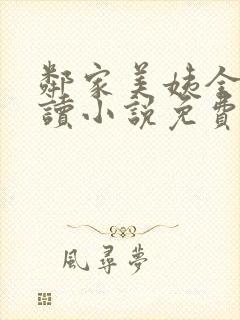 鄰家美姨全
讀小說免費
風尋夢